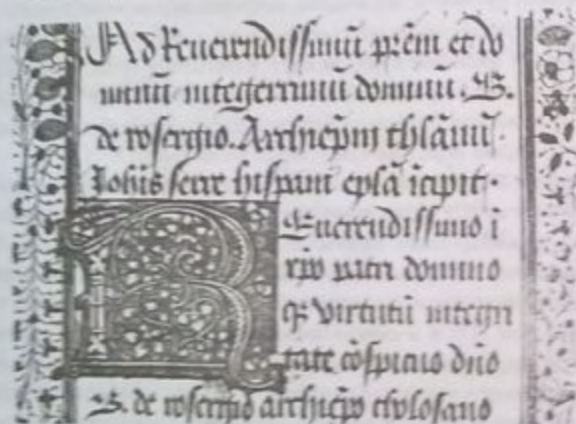 Ad Reuerendissimū prēm et do
minū integerrimū dominū .B.
de rosergio. Archiep̄m thlānū
Joh̄is serre hispani ep̄lā īcipit.
Reuerendissimo ī
xp̄o patri domino
qȝ virtutū integri
tate cōspicuo dn̄o
B. de rosergio archiep̄o tholosano